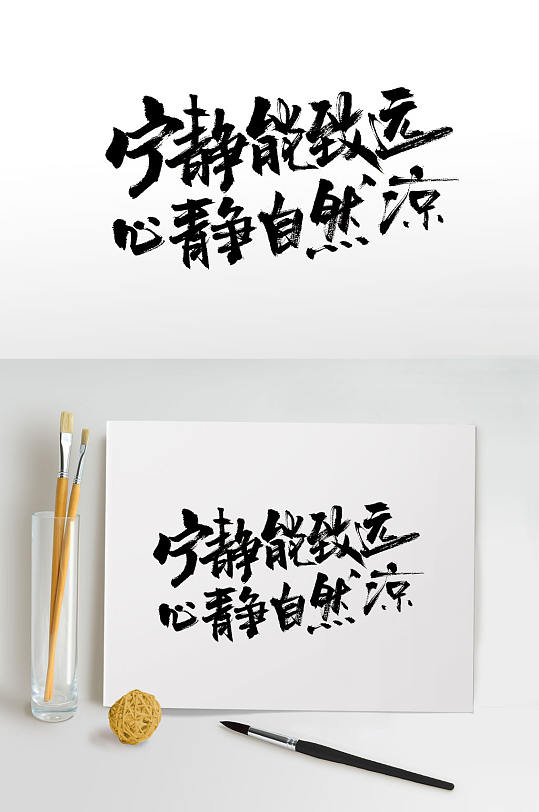 宁静能致远
心静自然凉
宁静能致远
心静自然凉